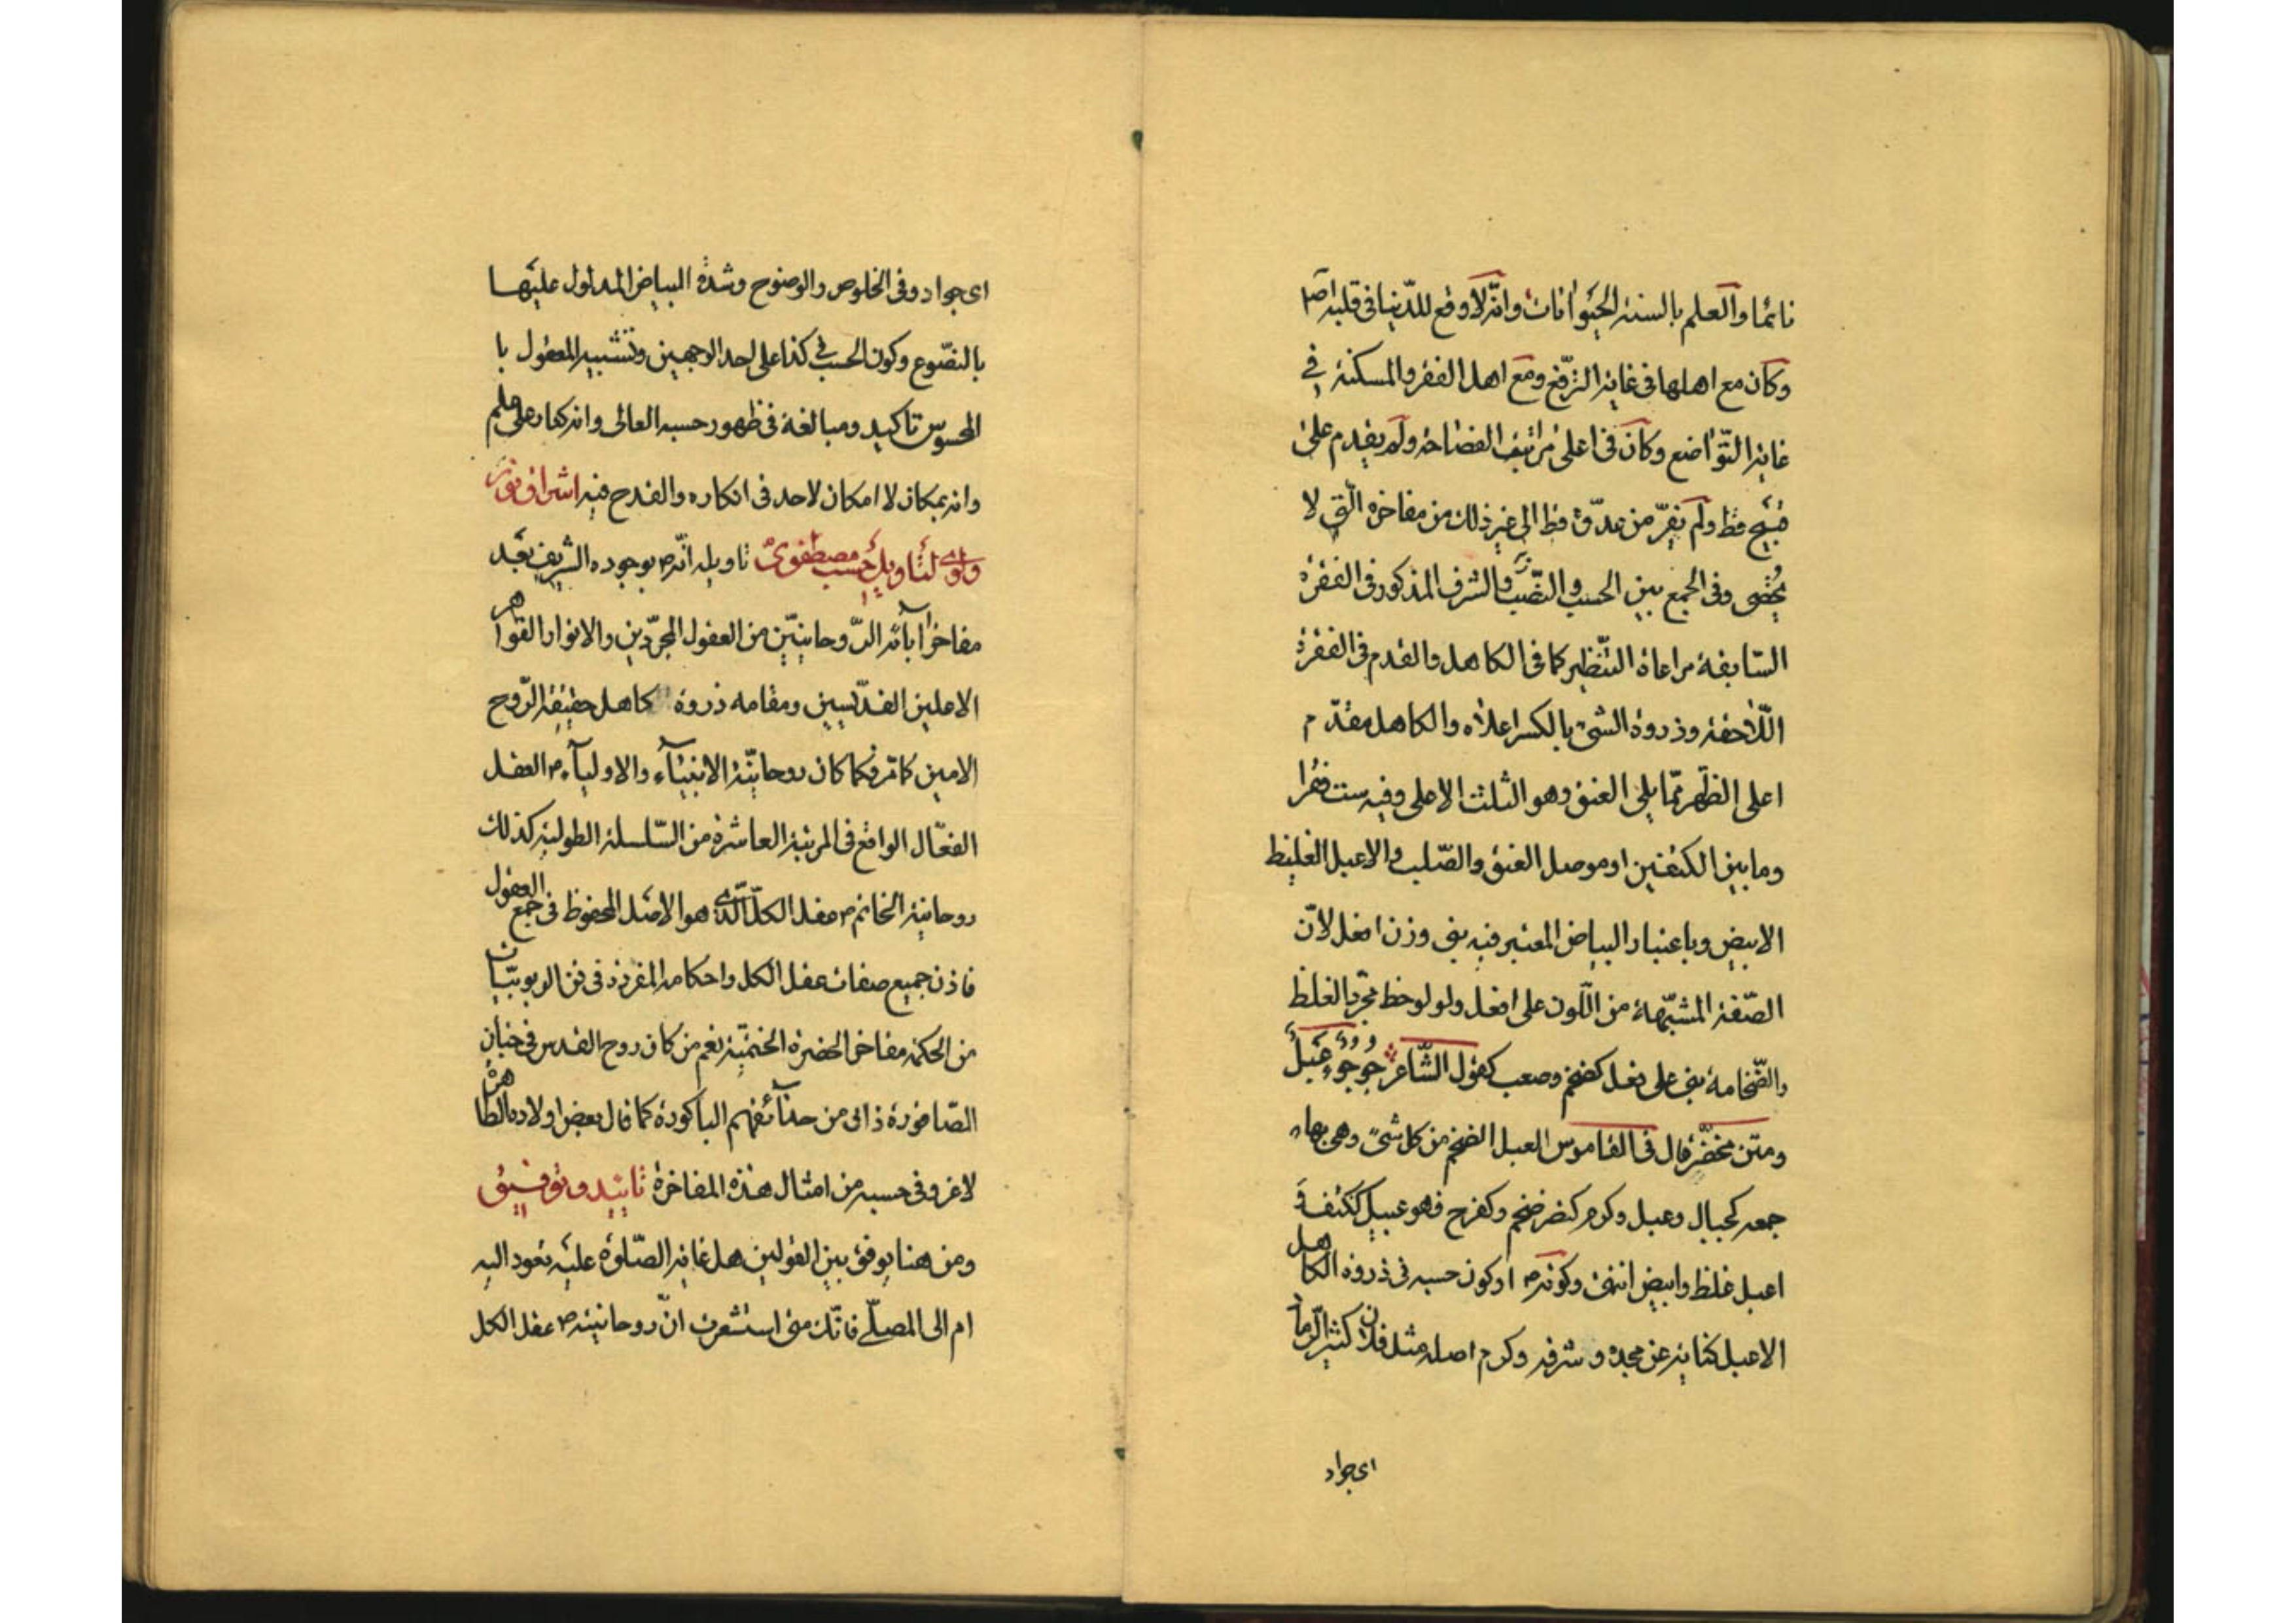 نائما والعلم بالسنة الحيوانات وانه لا وقع للدنيا فى قلبه اصلا
وكان مع اهلها فى غاية الترفع ومع اهل الفقر والمسكنة فى
غاية التواضع وكان فى اعلى مراتب الفصاحة ولم يقدم على
قبيح قط ولم يفر من عدو قط الى غير ذلك من مفاخره التى لا
تحصى وفى الجمع بين الحسب والنسب والشرف المذكور فى الفقرة
السابقة مراعاة النظير كما فى الكاهل والقدم فى الفقرة
اللاحقة وذروة الشئ بالكسر اعلاه والكاهل مقدم
اعلى الظهر مما يلى العنق وهو الثلث الاعلى وفيه ست فقرا
وما بين الكتفين او موصل العنق والصلب والاعبل الغليظ
الابيض وباعتبار البياض المعتبر فيه بنى وزن افعل لان
الصفة المشبهة من اللون على افعل ولو لوحظ مجرد الغلظ
والضخامة بنى على فعل كضخم وصعب كقول الشاعر جؤجؤ عبل
ومتن قال فى القاموس العبل الضخم من كل شئ وهى بهاء
جمعه كجبال وعبل وكرم كنصر ضخم وكفرح فهو عبل ككتف و
اعبل غلظ وابيض انتهى وكونه ص او كون حسبه فى ذروة الكاهل
الاعبل كناية عن مجده وشرفه وكرم اصله مثل فلان كثير الرماد
اى جواد
اى جواد وفى الخلوص والوضوح وشدة البياض المدلول عليها
بالنصوع وكون الحسب فى كذا على احد الوجهين وتشبيه المعقول با
المحسوس تاكيد ومبالغة فى ظهور حسبه العالى وانه كنار على علم
وانه بمكان لا امكان لاحد فى انكاره والقدح فيه اشراق نورى
لتاويل حسب مصطفوى تاويله انه ص بوجوده الشريف يعد
مفاخر آبائه الروحانيين من العقول المجردين والانوار القواهر
الاعلين القديسين ومقامه ذروة كاهل حقيقة الروح
الامين كما مر فكما كان روحانية الانبياء والاولياء العقل
الفعال الواقع فى المرتبة العاشرة من السلسلة الطولية كذلك
روحانية الخاتم ص عقل الكل الذى هو الاصل المحفوظ فى جمع العقول
فاذن جميع صفات عقل الكل واحكامه المقررة فى فن الربوبيات
من الحكمة مفاخر الحضرة الختمية نعم من كان روح القدس فى جنان
الصاقورة ذاق من حدائقهم الباكورة كما قال بعض اولاده الطاهرة
لا غرو فى حسبه من امثال هذه المفاخرة تاييد وتوفيق
ومن هنا يوفق بين القولين هل غاية الصلوة عليه تعود اليه
ام الى المصلى فانك متى استشعرت ان روحانيته ص عقل الكل